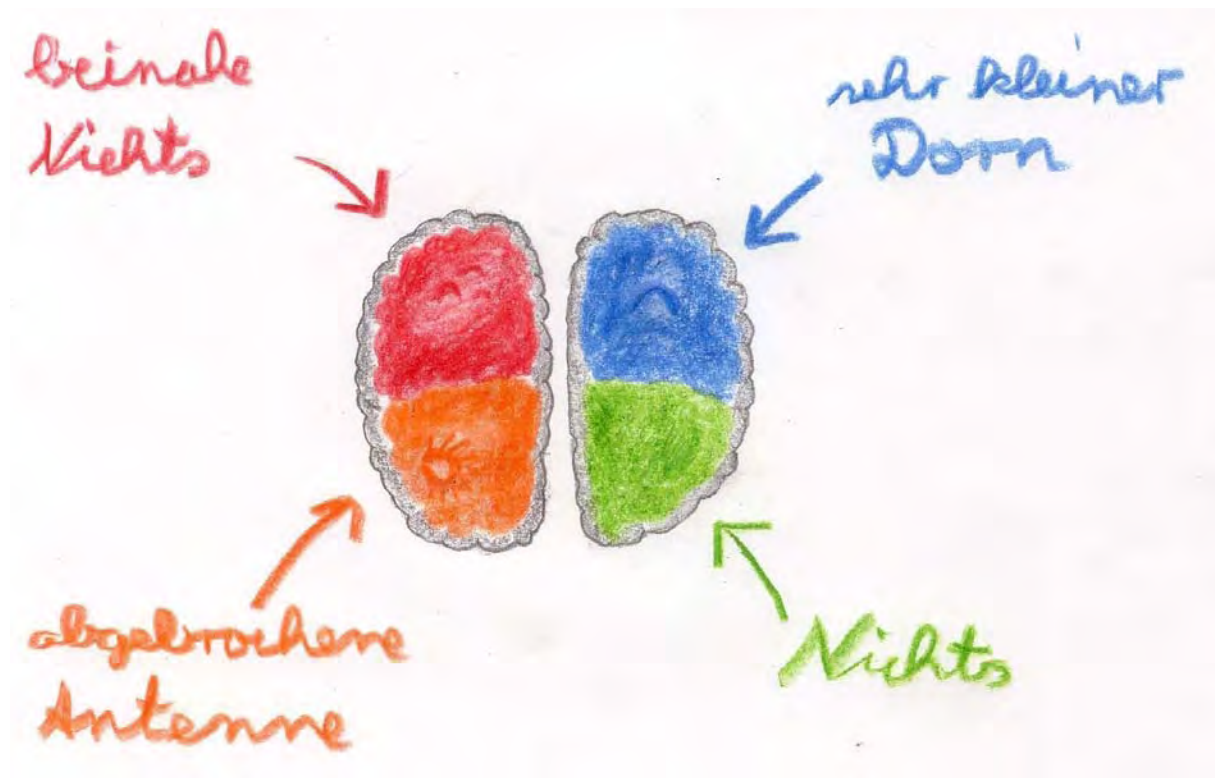 beinahe
Nichts
sehr kleiner
Dorn
abgebrochene
Antenne
Nichts